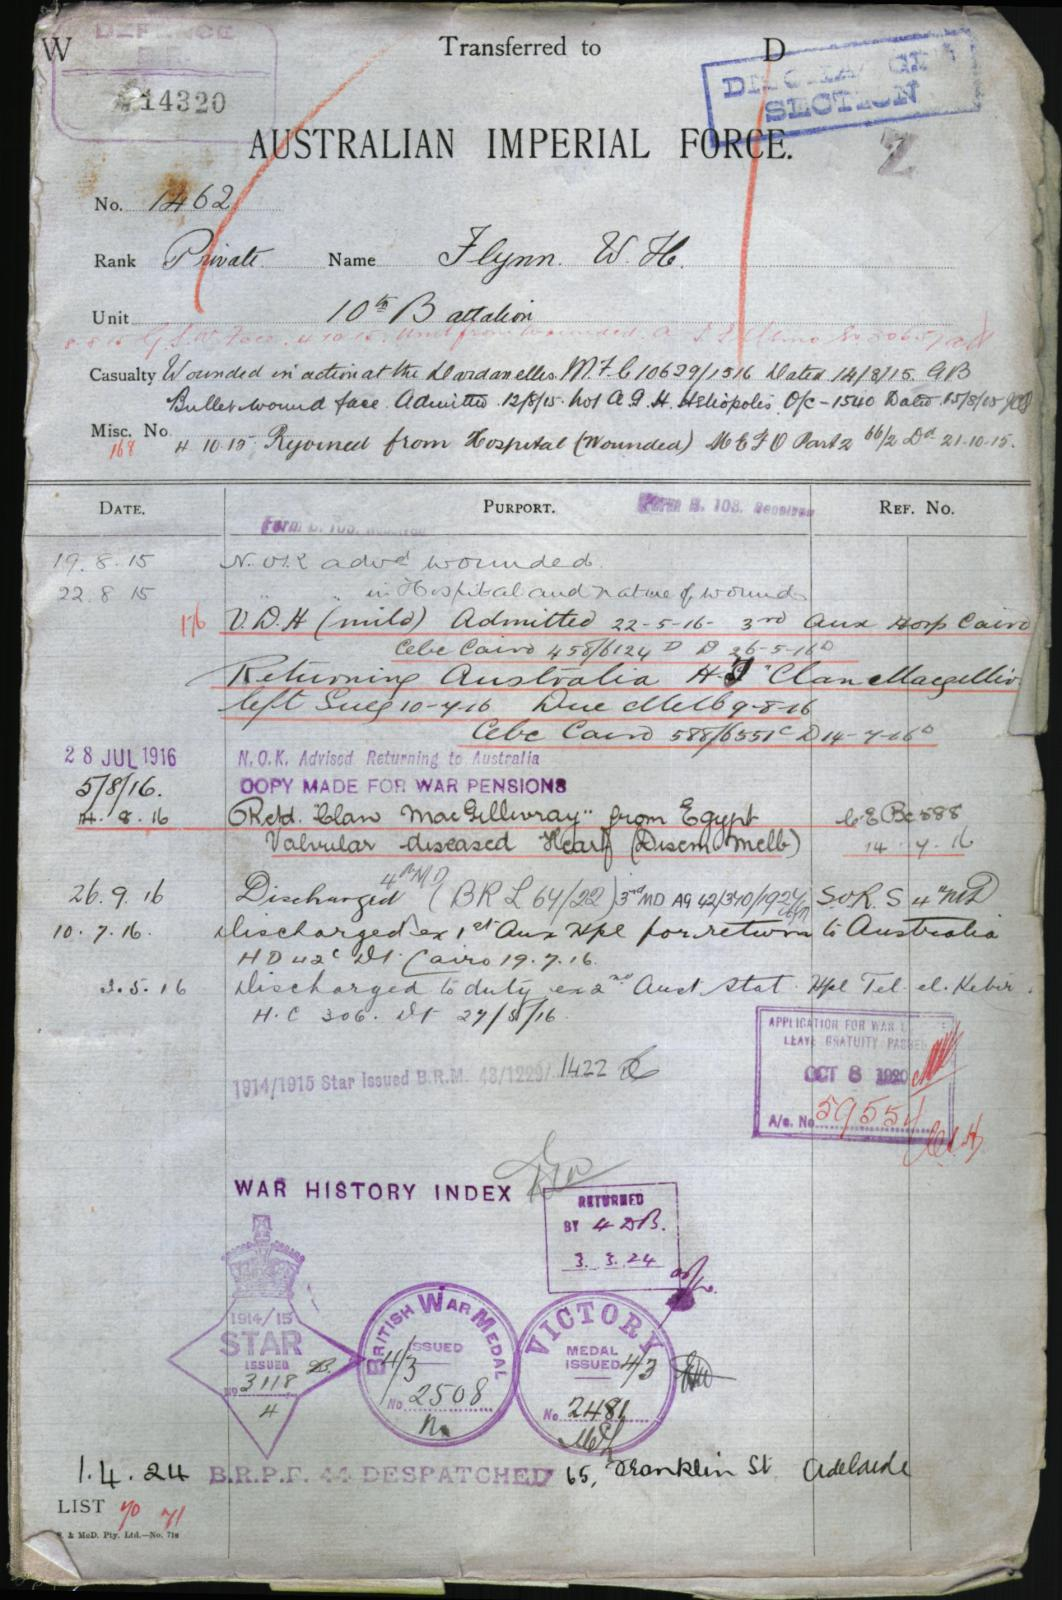 W Transferred to D
DEFENCE
14320
DISCHARGE
SECTION
AUSTRALIAN IMPERIAL FORCE.
Z
No. 1462
Rank Private Name Flynn. W. H.
Unit 10th Battalion
8-8-15 G.S.W. Face. 4.10.15. wounded.
Casualty Wounded in action at the Dardanelles. M.F.C 10629/1516 Dated 14/8/15 GB
Bullet wound face Admitted 12/8/15 hos A G H Heliopolis O/C - 1540 Dated 15/8/15
Misc. No. 4 10.15 Rejoined from Hospital (Wounded) M E F O Part 2 66/2 Dd 21.10.15.
168
DATE. PURPORT. REF. No.
Form B. 103. Received
Form B. 103. Received
19.8.15 N.O.K advd wounded.
22.8 15 " " in Hospital and nature of wounds
176 V.D.H (mild) Admitted 22-5-16- 3rd Aux Hosp Cairo
Cebc Cairo 458/6124 D D 26-5-16
Returning Australia H.T "Clan Macgilliv
left Suez 10-7-16 Due Melb 9-8-16
Cebc Cairo 588/6551c D 14-7-16
28 JUL 1916 N.O.K. Advised Returning to Australia
5/8/16. COPY MADE FOR WAR PENSIONS
4. 8. 16 Retd. "Clan MacGillivray" from Egypt C.E.Bc 588
Valvular diseased Heart (Disem Melb) 14. 7. 16
4th M/D
26.9.16 Discharged (BRL 64/22) 3rd MD AG 42/340/1924 SORS 4th MD
10.7.16. Discharged ex 1st Aux Hpl for return to Australia
H D 42c Dt Cairo 19.7.16.
3.5.16 Discharged to duty ex 2nd Aust Stat Hpl Tel. el. Kebir.
H.C 306. Dt 27/5/16.
APPLICATION FOR WAR
LEAVE GRATUITY PASSED
OCT 8 1920
A/c. No 59554
1914/1915 Star Issued B.R.M. 43/1229/ 1422
WAR HISTORY INDEX
RETURNED
BY 4 DB.
3. 3. 24
1914/15
STAR
ISSUED
No 3118
4
BRITISH WAR MEDAL
ISSUED
4/3
No. 2508
VICTORY
MEDAL
ISSUED 4/3
No. 2481
1.4.24 B.R.P.F. 44 DESPATCHED 65, Franklin St Adelaide
LIST 70 71
& McD. Pty. Ltd.—No. 718